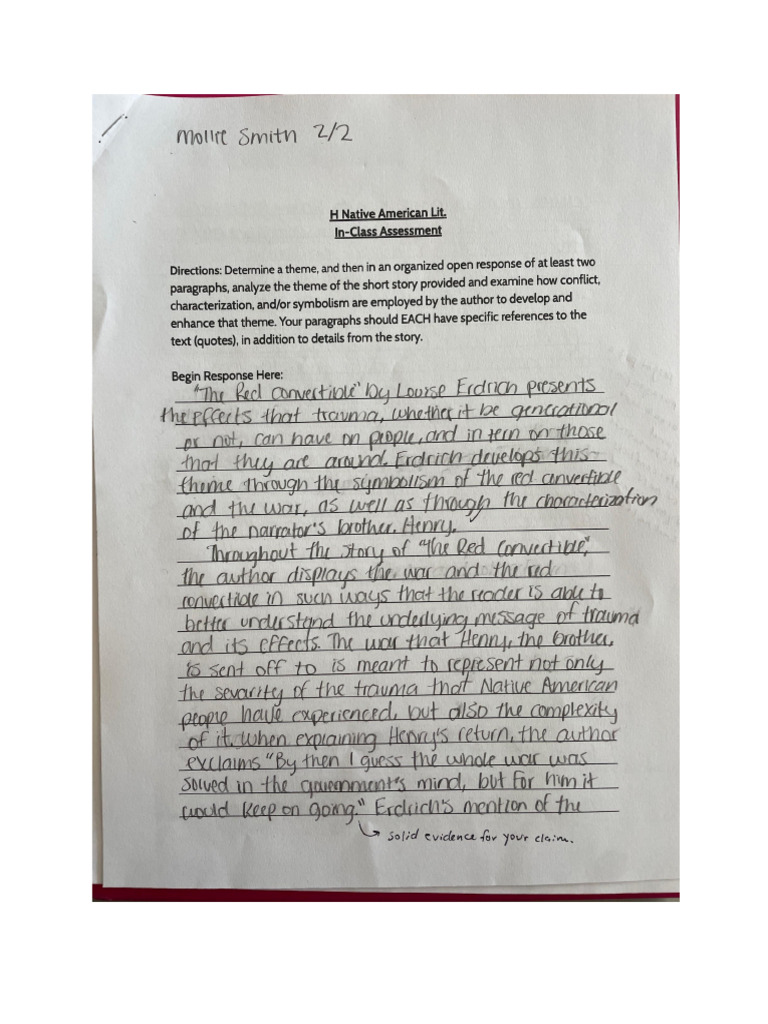 Mollie Smith 2/2
H Native American Lit.
In-Class Assessment
Directions: Determine a theme, and then in an organized open response of at least two
paragraphs, analyze the theme of the short story provided and examine how conflict,
characterization, and/or symbolism are employed by the author to develop and
enhance that theme. Your paragraphs should EACH have specific references to the
text (quotes), in addition to details from the story.
Begin Response Here:
"The Red Convertible" by Louise Erdrich presents
the effects that trauma, whether it be generational
or not, can have on people, and in tern on those
that they are around. Erdrich develops this
theme through the symbolism of the red convertible
and the war, as well as through the characterization
of the narrator's brother, Henry.
Throughout the story of "The Red Convertible",
the author displays the war and the red
convertible in such ways that the reader is able to
better understand the underlying message of trauma
and its effects. The war that Henry, the brother,
is sent off to is meant to represent not only
the severity of the trauma that Native American
people have experienced, but also the complexity
of it. When explaining Henry's return, the author
exclaims "By then I guess the whole war was
solved in the government's mind, but for him it
would keep on going." Erdrich's mention of the
solid evidence for your claim.